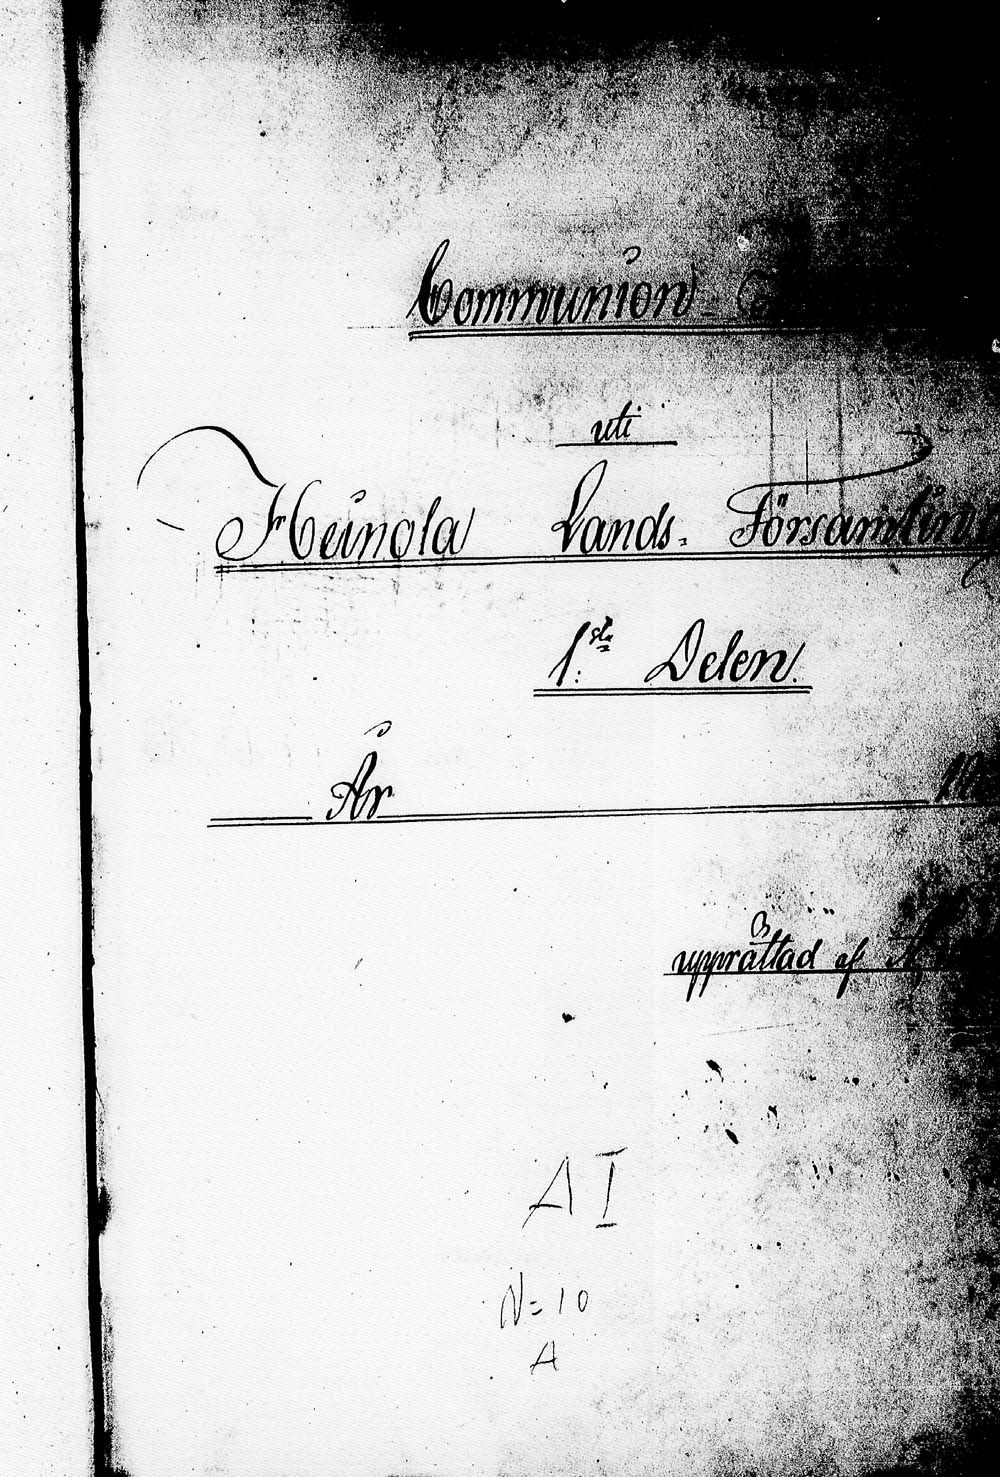 Communion
uti
Heinola Lands-Församling
1:sta Delen.
År
upprättad af
A I
N=10
A